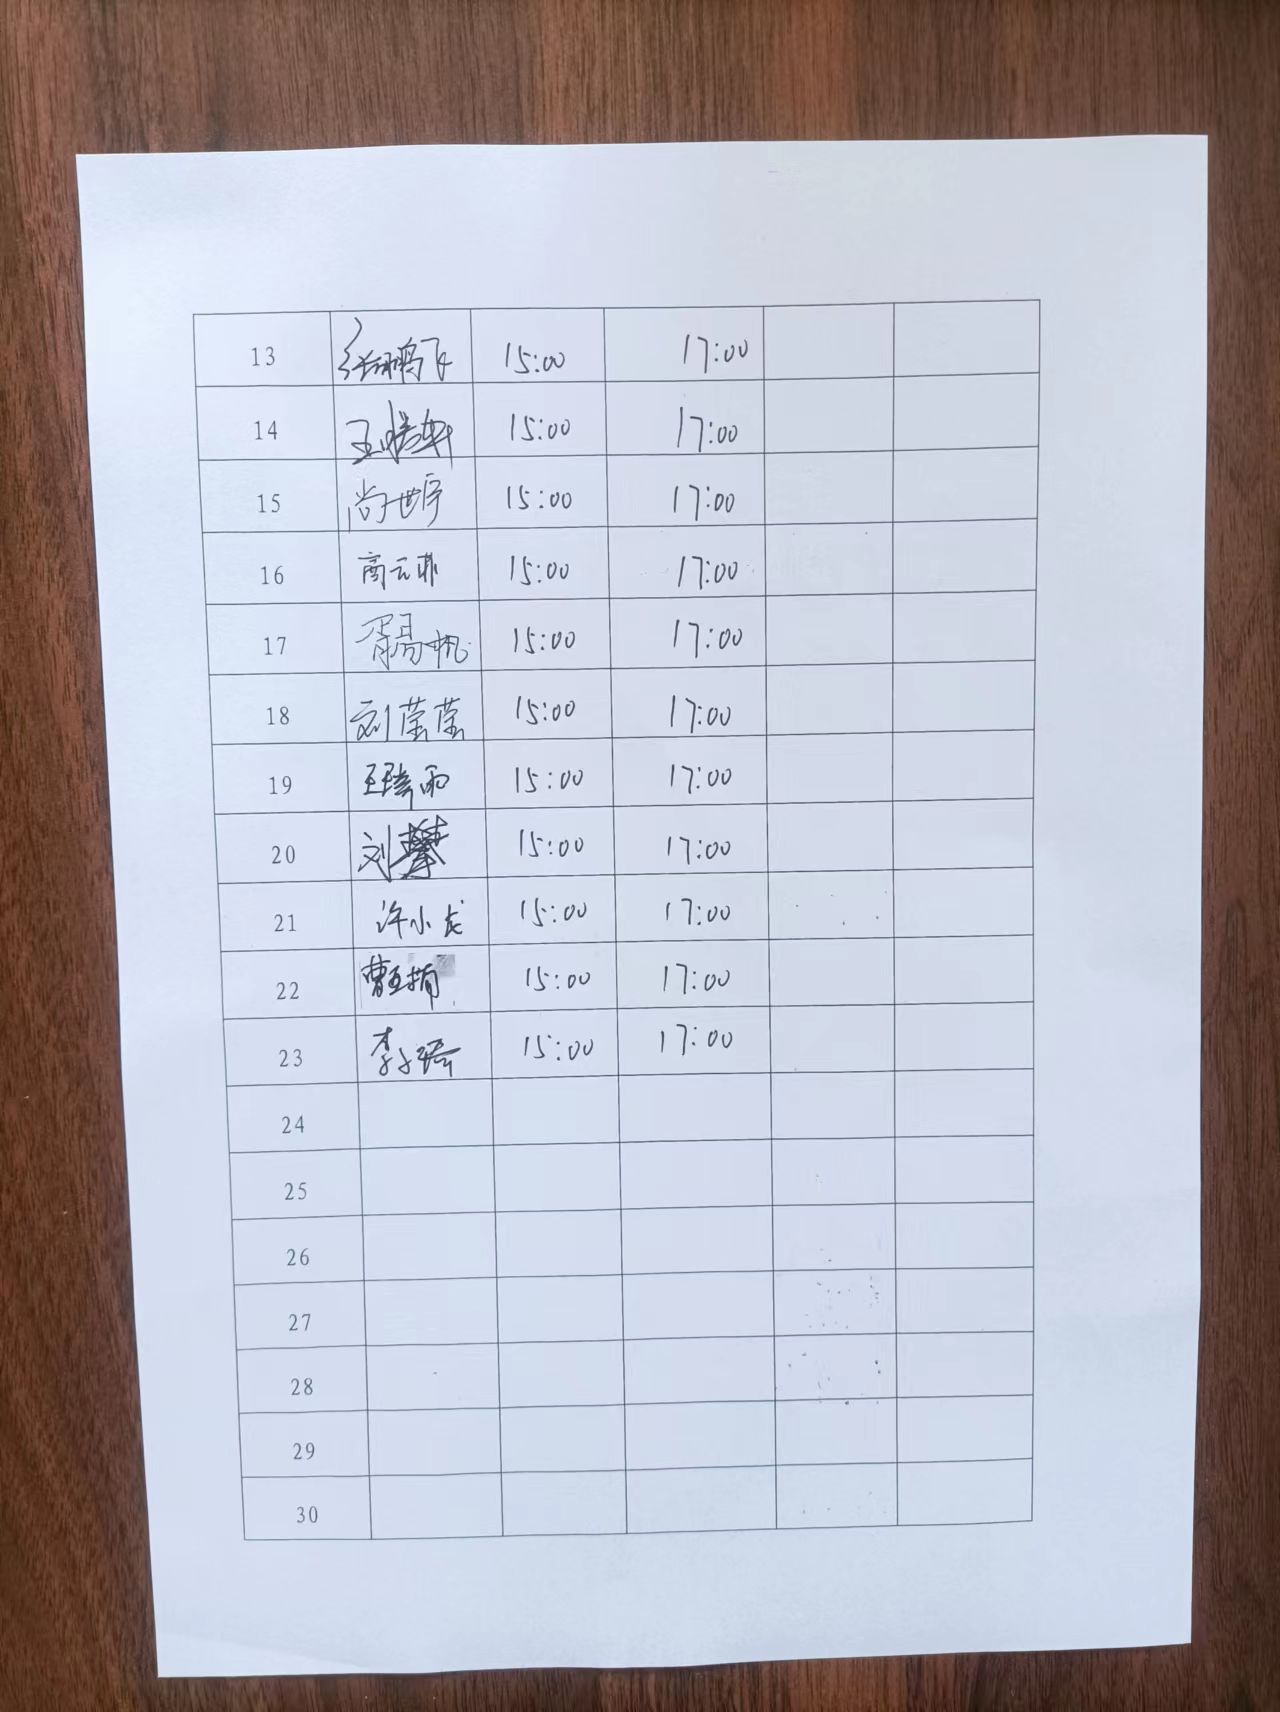 13 张鹏飞 15:00 17:00
14 王腾轩 15:00 17:00
15 尚世宇 15:00 17:00
16 商云菲 15:00 17:00
17 胥易帆 15:00 17:00
18 刘莹莹 15:00 17:00
19 王琦雨 15:00 17:00
20 刘攀 15:00 17:00
21 许小龙 15:00 17:00
22 曹 15:00 17:00
23 李子琦 15:00 17:00
24
25
26
27
28
29
30